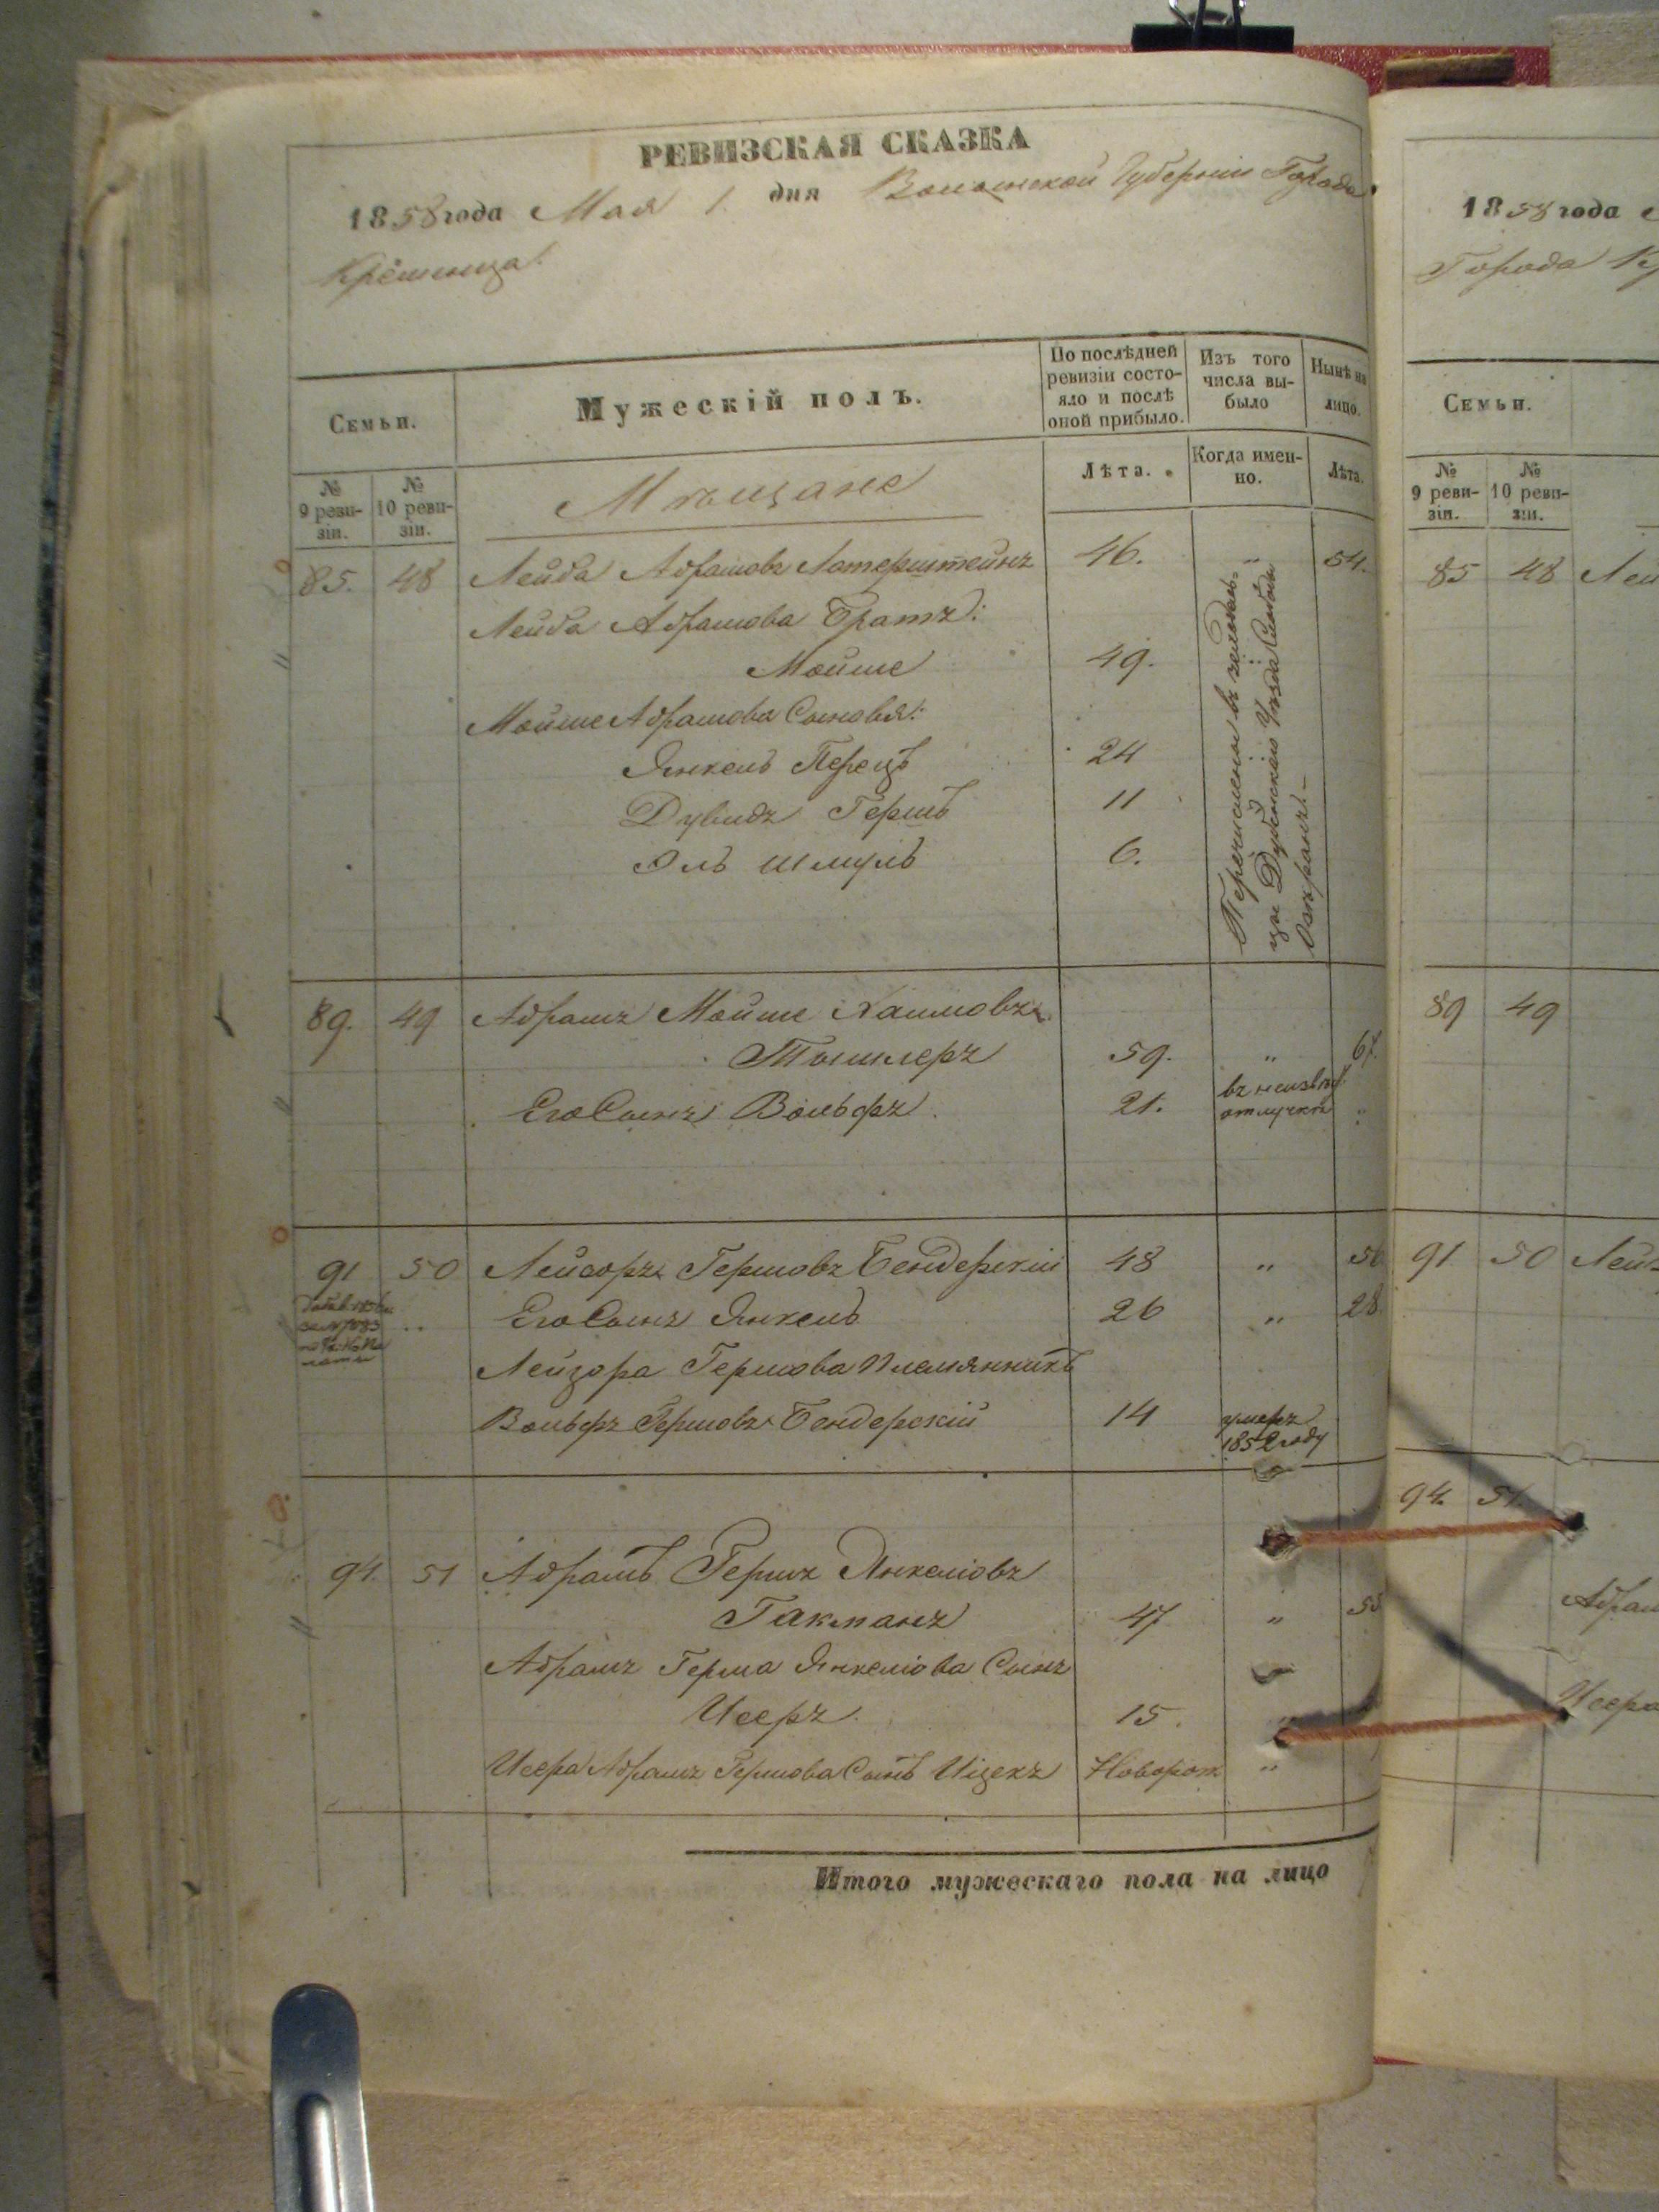 РЕВИЗСКАЯ СКАЗКА
1858 года Мая 1. дня Волынской Губернии Города
Кремянца.
Семьи.
Мужескій полъ.
По послѣдней ревизіи состо-
яло и послѣ
оной прибыло.
Изъ того
числа вы-
было
Нынѣ на
лицо.
№
9 реви-
зіи.
№
10 реви-
зіи.
Мѣщане
Лѣта.
Когда имен-
но.
Лѣта.
85. 48 Лейба Абрамовъ Латерштейнъ 46. " 54.
Лейба Абрамова Братъ:
Мойше 49.
Мойше Абрамова Сыновья:
Янкель Перецъ 24
Дувидъ Гершъ 11
Эль Шмуль 6.
Перечислены въ
цы Дубенскаго Уѣзда
89. 49 Абрамъ Мойше Хаимовъ
Тышлеръ 59. " 67.
Его Сынъ Вольфъ 21. въ неизвѣс.
отлучкѣ "
91 50 Лейзоръ Гершовъ Бендерскій 48 " 56
Его Сынъ Янкель 26 " 28
Лейзора Гершова Племянникъ
Вольфъ Гершовъ Бендерскій 14 умеръ
1852 году
94. 51 Абрамъ Гершъ Янкеліовъ
Гакманъ 47 " 55
Абрамъ Герша Янкеліова Сынъ
Исеръ 15. "
Исера Абрамъ Гершова Сынъ Ицекъ Новорож "
Итого мужескаго пола на лицо
1858 года
Города
Семьи.
№
9 реви-
зіи.
№
10 реви-
зіи.
85 48 Лей
89 49
91 50 Лейз
94. 51.
Абрам
Исера